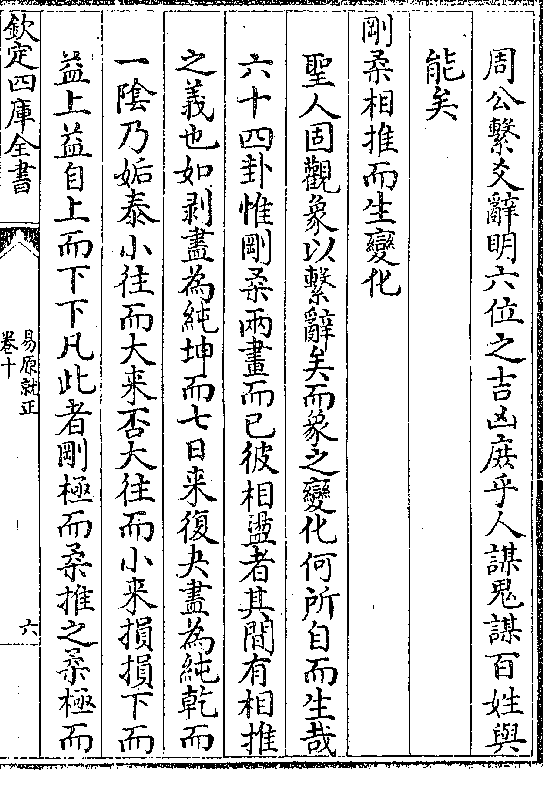 周公繫爻辭明六位之吉凶庻乎人謀鬼謀百姓與
能矣
剛柔相推而生變化
聖人固觀象以繫辭矣而象之變化何所自而生哉
六十四卦惟剛柔兩畫而已彼相盪者其間有相推
之義也如剥盡為純坤而七日来復夬盡為純乾而
一隂乃姤泰小往而大来否大往而小来損損下而
益上益自上而下下凡此者剛極而柔推之柔極而
欽定四庫全書
易原就正
卷十
六